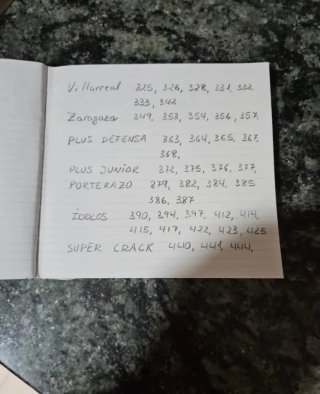 Villarreal 325, 326, 328, 331, 332,
333, 342
Zaragoza 349, 353, 354, 356, 357,
PLUS DEFENSA 363, 364, 365, 367,
368,
PLUS JUNIOR 372, 375, 376, 377,
PORTERAZO 379, 382, 384, 385
386, 387
ÍDOLOS 390, 394, 397, 412, 414,
415, 417, 422, 423, 425
SUPER CRACK 440, 441, 444,